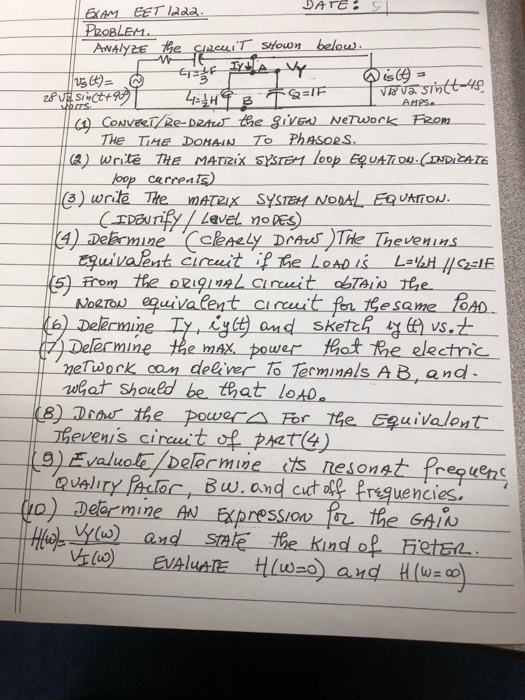 EXAM EET 1222. DATE: 5
PROBLEM.
ANALYZE the CIRCUIT SHOWN below.
C1=1/3F IY↓ A VY is(t) =
vs(t)=
L=1/2H B C2=1F √2 sin(t-48
28√2 sin(t+90°) AMPS.
VOLTS.
(1) CONVERT/RE-DRAW the given NETWORK FROM
THE TIME DOMAIN TO PHASORS.
(2) Write THE MATRIX SYSTEM loop EQUATION. (INDICATE
loop currents)
(3) write The MATRIX SYSTEM NODAL EQUATION.
(IDENTIFY/Level NODES)
(4) Determine (CLEARLY DRAW) THE Thevenins
Equivalent circuit if the LOAD is L=1/2H // C2=1F
(5) From the ORIGINAL circuit obTAIN the
NORTON equivalent circuit for the same LOAD.
(6) Determine IY, iy(t) and sketch iy(t) vs.t
(7) Determine the MAX. power that the electric
network can deliver To Terminals AB, and.
what should be that LOAD.
(8) Draw the power△ For the Equivalent
Thevenis circuit of PART(4)
(9) Evaluate/Determine its resonat frequenc
QUALITY factor, BW. and cut off frequencies.
(10) Determine AN Expression for the GAIN
H(ω)= VY(ω)/VI(ω) and STATE the kind of FIETER.
EVALUATE H(ω=0) and H(ω=∞)